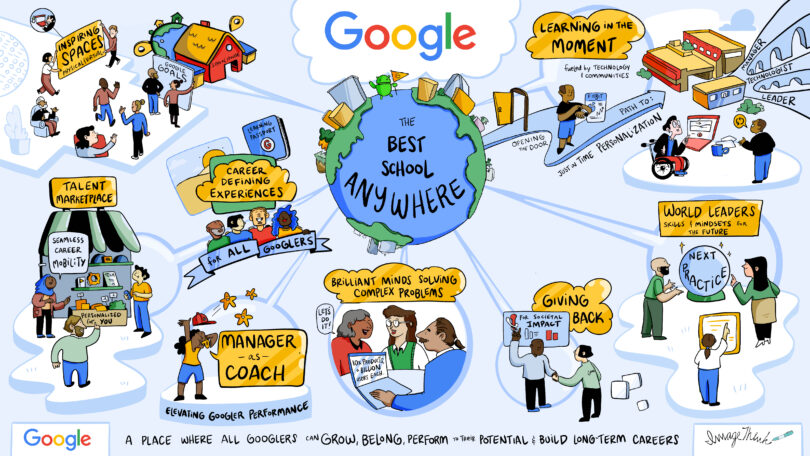 Google
INSPIRING
SPACES
PHYSICAL/VIRTUAL
GOOGLE
GOALS
LEARNING IN THE
MOMENT
fueled by TECHNOLOGY
& COMMUNITIES
MANAGER
TECHNOLOGIST
LEADER
OPENING
THE DOOR
PATH TO:
JUST IN TIME PERSONALIZATION
THE
BEST
SCHOOL
ANYWHERE
LEARNING
PASSPORT
G
CAREER
DEFINING
EXPERIENCES
for ALL GOOGLERS
TALENT
MARKETPLACE
SEAMLESS
CAREER
MOBILITY
PERSONALIZED
for YOU
MANAGER
-as-
COACH
ELEVATING GOOGLER PERFORMANCE
BRILLIANT MINDS SOLVING
COMPLEX PROBLEMS
LET'S
DO
IT!
10X PRODUCTS
BILLION
USERS EACH
GIVING
BACK
FOR SOCIETAL
IMPACT
WORLD LEADERS
SKILLS & MINDSETS for
THE FUTURE
NEXT
PRACTICE
Google
A PLACE WHERE ALL GOOGLERS CAN GROW, BELONG, PERFORM TO THEIR POTENTIAL & BUILD LONG-TERM CAREERS
ImageThink